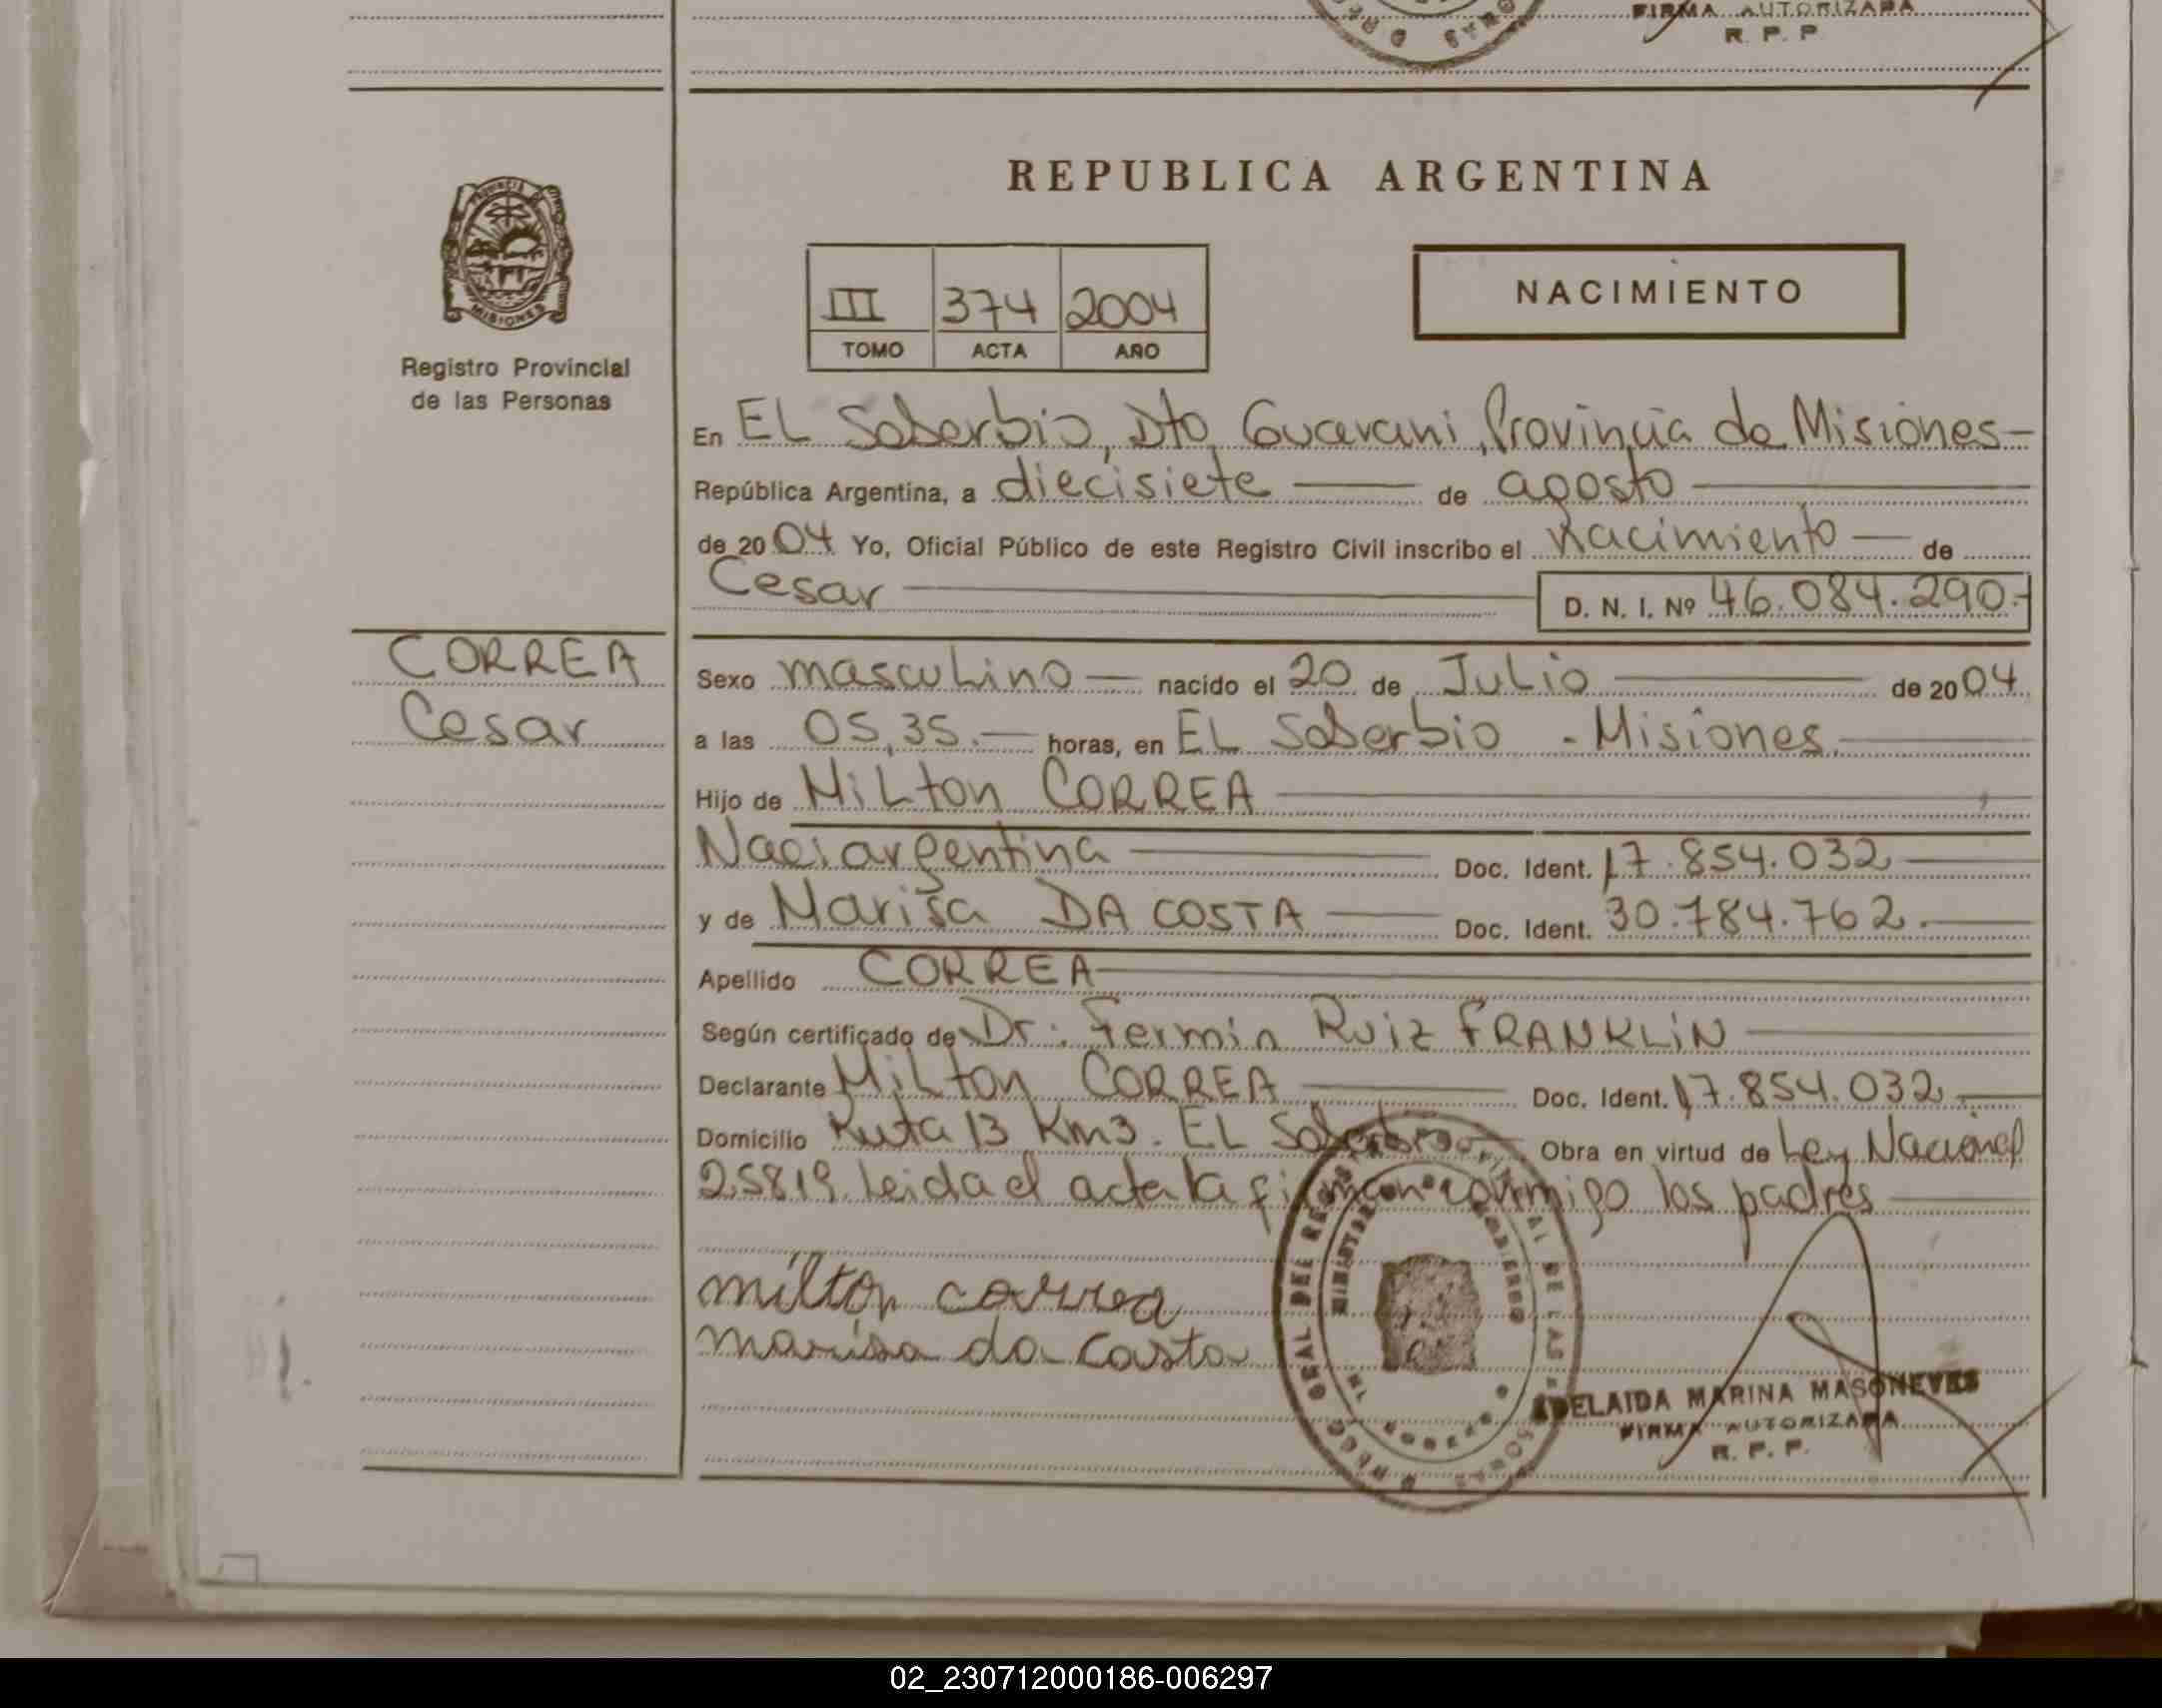 FIRMA AUTORIZADA
R. P. P
REPUBLICA ARGENTINA
PROVINCIA DE
MISIONES
Registro Provincial
de las Personas
III 374 2004
TOMO ACTA AÑO
NACIMIENTO
En EL Soberbio, Dto Guarani, Provincia de Misiones
República Argentina, a diecisiete de agosto
de 2004 Yo, Oficial Público de este Registro Civil inscribo el nacimiento de
Cesar D. N. I. Nº 46.084.290.
CORREA
Cesar
Sexo masculino nacido el 20 de Julio de 2004
a las 05,35. horas, en EL Soberbio - Misiones.
Hijo de Milton CORREA
Naci argentina Doc. Ident. 17.854.032
y de Marisa DA COSTA Doc. Ident. 30.784.762.
Apellido CORREA
Según certificado de Dr: Fermin Ruiz FRANKLIN
Declarante Milton CORREA Doc. Ident. 17.854.032
Domicilio Ruta 13 Km3. EL Soberbio Obra en virtud de Ley Nacional
25819. Leida el acta la firman conmigo los padres
milton correa
marisa da costa
ADELAIDA MARINA MASONEVES
FIRMA AUTORIZADA
R. P. P.
02_230712000186-006297